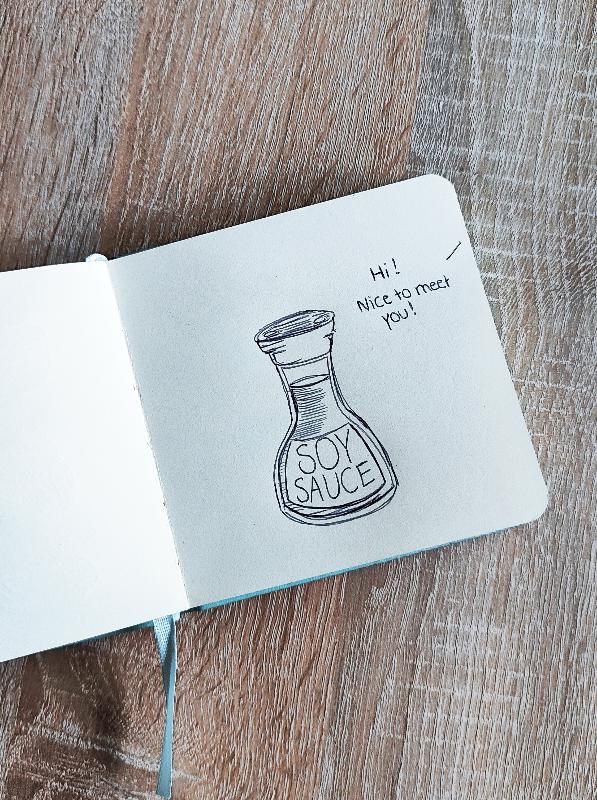 Hi!
Nice to meet
you!
SOY
SAUCE